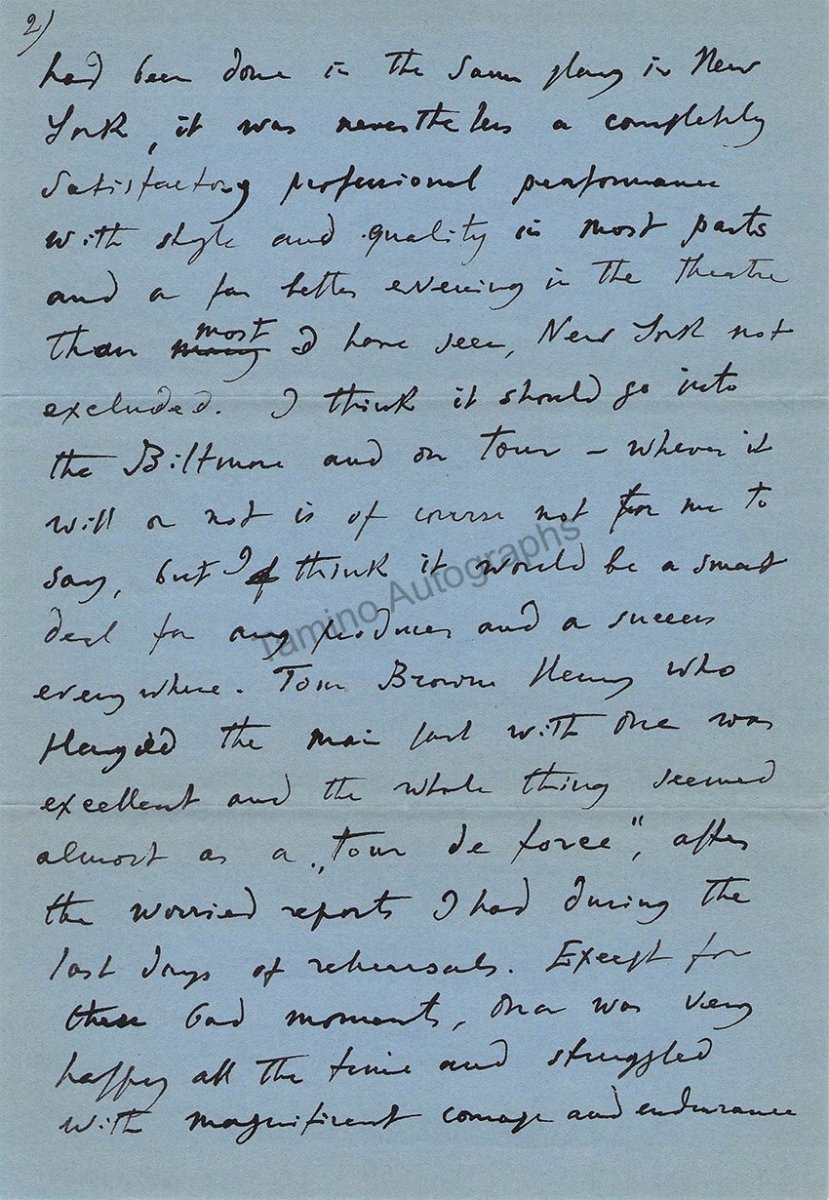 2)
had been done in the same play in New
York, it was nevertheless a completely
satisfactory professional performance
with style and quality in most parts
and a far better evening in the theatre
than many most I have seen, New York not
excluded. I think it should go into
the Biltmore and on tour – whever it
will or not is of course not for me to
say, but I think it would be a smart
deal for any producer and a success
everywhere. Tom Browne Henry who
played the main part with Ona was
excellent and the whole thing seemed
almost as a „tour de force", after
the worried reports I had during the
last days of rehearsals. Except for
these bad moments, Ona was very
happy all the time and struggled
with magnificent courage and endurance
Tamino Autographs